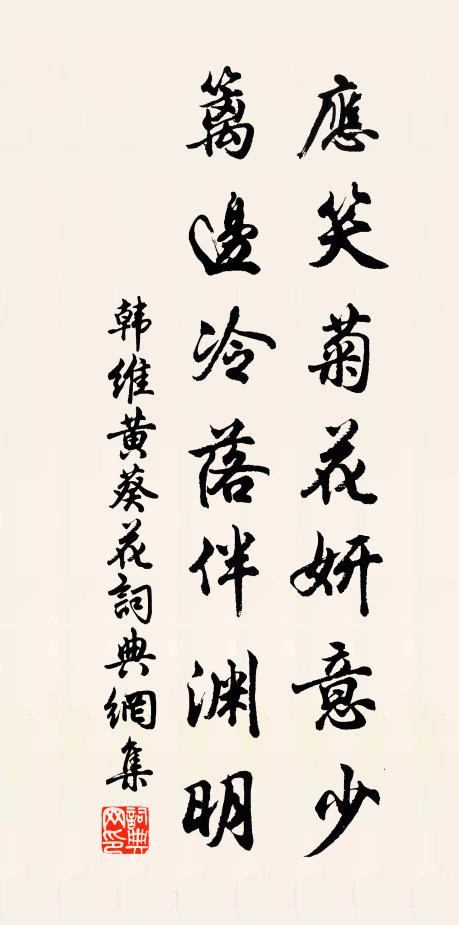 應笑菊花妍意少
籬邊冷落伴渊明
韩維黃葵花詞典網集
詞典网印